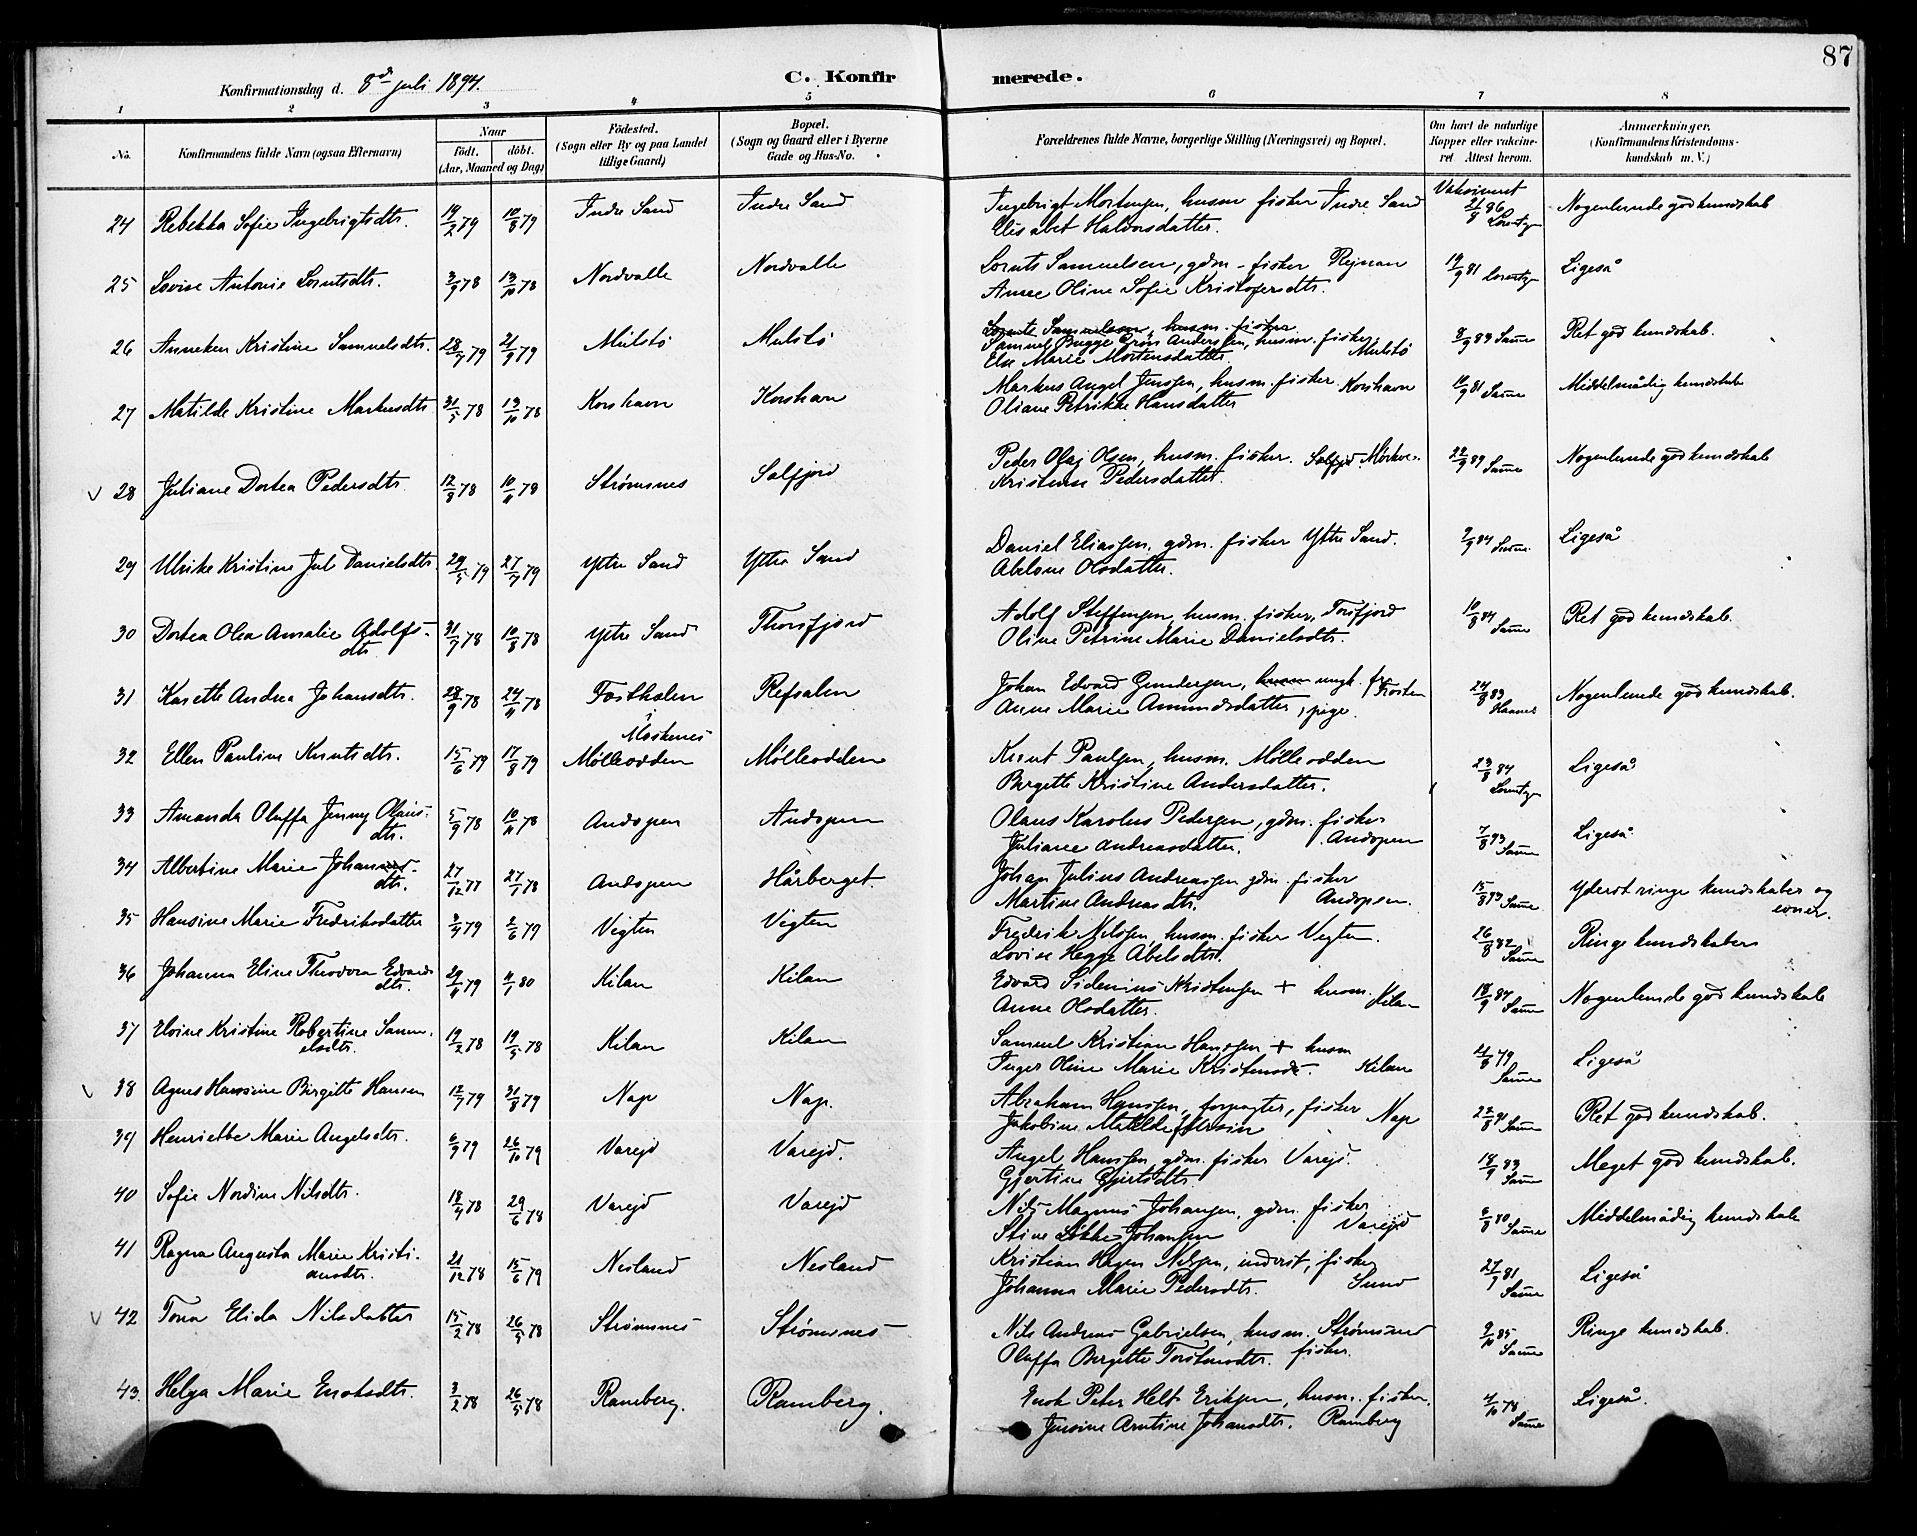 87
Konfirmationsdag d. 8de juli 1894. C. Konfir merede.
1 2 3 4 5 6 7 8
No. Konfirmandens fulde Navn (ogsaa Efternavn) Naar født. døbt. (Aar, Maaned og Dag) Fødested. (Sogn eller By og paa Landet tillige Gaard) Bopæl. (Sogn og Gaard eller i Byerne Gade og Hus-No. Forældrenes fulde Navne, borgerlige Stilling (Næringsvei) og Bopæl. Om havt de naturlige Kopper eller vakcineret Attest herom. Anmærkninger, (Konfirmandens Kristendomskundskab m. V.)
24 Rebekka Sofie Ingebrigtsdtr. 19/2 79 10/8 79 Indre Sand Indre Sand Ingebrigt Mortensen, husm fisker Indre Sand Vakcineret 21/8 86 Nogenlunde god kundskab
Elisabet Haldorsdatter. Lorentzen
25 Lovise Antonie Lorntsdtr. 3/9 78 13/10 78 Nordvalle Nordvalle Lornts Samuelsen, gdm - fisker 19/9 81 Lorentzen Ligeså
Anne Oline Sofie Kristofersdtr.
26 Anneken Kristine Samuelsdtr. 28/7 79 21/9 79 Mulstø Mulstø Lornts Samuelsen, husm. fisker 8/9 83 Samme Ret god kundskab.
Samuel Bugge Grøn Anderssen, husm. fisker Mulstø
Else Marie Mortensdatter.
27 Matilde Kristine Markusdtr 31/5 78 13/10 78 Korshavn Korshavn Markus Angel Jenssen, husm. fisker Korshavn 10/9 81 Samme Middelmådig kundskab
Oliane Petrikke Hansdatter
28 Juliane Dortea Pedersdtr. 12/8 78 10/11 78 Strømsnes Solfjord Peder Olaj Olsen, husm. fisker. 22/9 89 Samme Nogenlunde god kundskab
Kristense Pedersdatter.
29 Ulrike Kristine Jul. Danielsdtr. 29/5 79 27/7 79 Ytre Sand Ytre Sand Daniel Eliassen, gdm. fisker Ytre Sand. 9/9 84 Samme Ligeså
Abelone Olsdatter.
30 Dortea Olea Amalie Adolfsdtr. 31/7 78 10/8 78 Ytre Sand Thorsfjord Adolf Steffensen, husm. fisker, Torsfjord 10/8 84 Samme Ret god kundskab.
Oline Petrine Marie Danielsdtr.
31 Kasette Andrea Johansdtr. 28/9 78 24/11 78 Festhælen i Moskenes Refsalen Johan Edvard Gundersen, husm ungk. 24/8 83 Nogenlunde god kundskab.
Anne Marie Amundsdatter, pige.
32 Ellen Pauline Knutsdtr. 15/6 79 17/8 79 Mølleodden Mølleodden Knut Paulsen, husm. Mølleodden 23/8 84 Lorentzen Ligeså
Birgitte Kristine Andersdatter.
33 Amanda Oluffa Jenny Olausdtr. 5/9 78 10/11 78 Andopen Andopen Olaus Karolus Pedersen, gdm. fisker 7/8 83 Samme Ligeså
Juliane Andreasdatter. Andopen
34 Albertine Marie Johansdtr. 27/12 77 27/1 78 Andopen Hårberget. Johan Julius Andreassen gdm. fisker 15/8 83 Samme Yderst ringe kundskaber og evner.
Martine Andreasdtr. Andopen.
35 Hansine Marie Fredriksdatter 3/4 79 2/6 79 Vigten Vigten Fredrik Nilssen, husm. fisker Vigten. 26/8 82 Samme Ringe kundskaber
Lovise Hegge Abelsdtr.
36 Johanna Eline Theodora Edvardsdtr. 29/11 79 11/1 80 Kilan Kilan Edvard Sidenius Kristensen + husm. Kilan 18/9 84 Samme Nogenlunde god kundskab
Anne Olsdatter.
37 Elvine Kristine Robertine Samuelsdtr. 19/2 78 19/5 78 Kilan Kilan Samuel Kristian Hanssen + husm 21/8 79 Samme Ligeså
Inger Oline Marie Kristensdtr. Kilan
38 Agnes Hansine Birgitte Hansen 12/7 79 31/8 79 Nap Nap. Abraham Hanssen, forpagter, fisker Nap 22/8 91 Samme Ret god kundskab.
Jakobine Matilde
39 Henriette Marie Angelsdtr. 6/9 79 26/10 79 Varejd Varejd. Angel Hanssen, gdm. fisker Vareid. 18/9 83 Samme Meget god kundskab.
Gjertine Gjertsdtr
40 Sofie Nordine Nilsdtr. 18/4 78 29/6 78 Vareid Vareid Nils Magnus Johansen, gdm. fisker Vareid 6/8 80 Samme Middelmådig kundskab
Stine Løkke Johansen
41 Ragna Augusta Marie Kristiansdtr. 21/12 78 15/6 79 Nesland Nesland Kristian Hagen Nilssen, inderst, fisker 27/9 81 Samme Ligeså
Johanna Marie Pedersdtr. Sund
42 Tona Elida Nilsdatter 15/2 78 26/5 78 Strømsnes Strømsnes Nils Andreas Gabrielsen, husm. Strømsnes 9/10 85 Samme Ringe kundskab.
Oluffa Birgitte Torstensdtr. fisker.
43 Helga Marie Enoksdtr. 3/2 78 26/5 78 Ramberg. Ramberg. Enok Peter Helt Eriksen, husm. fisker. 4/10 78 Samme Ligeså.
Jensine Arntine Johansdtr. Ramberg